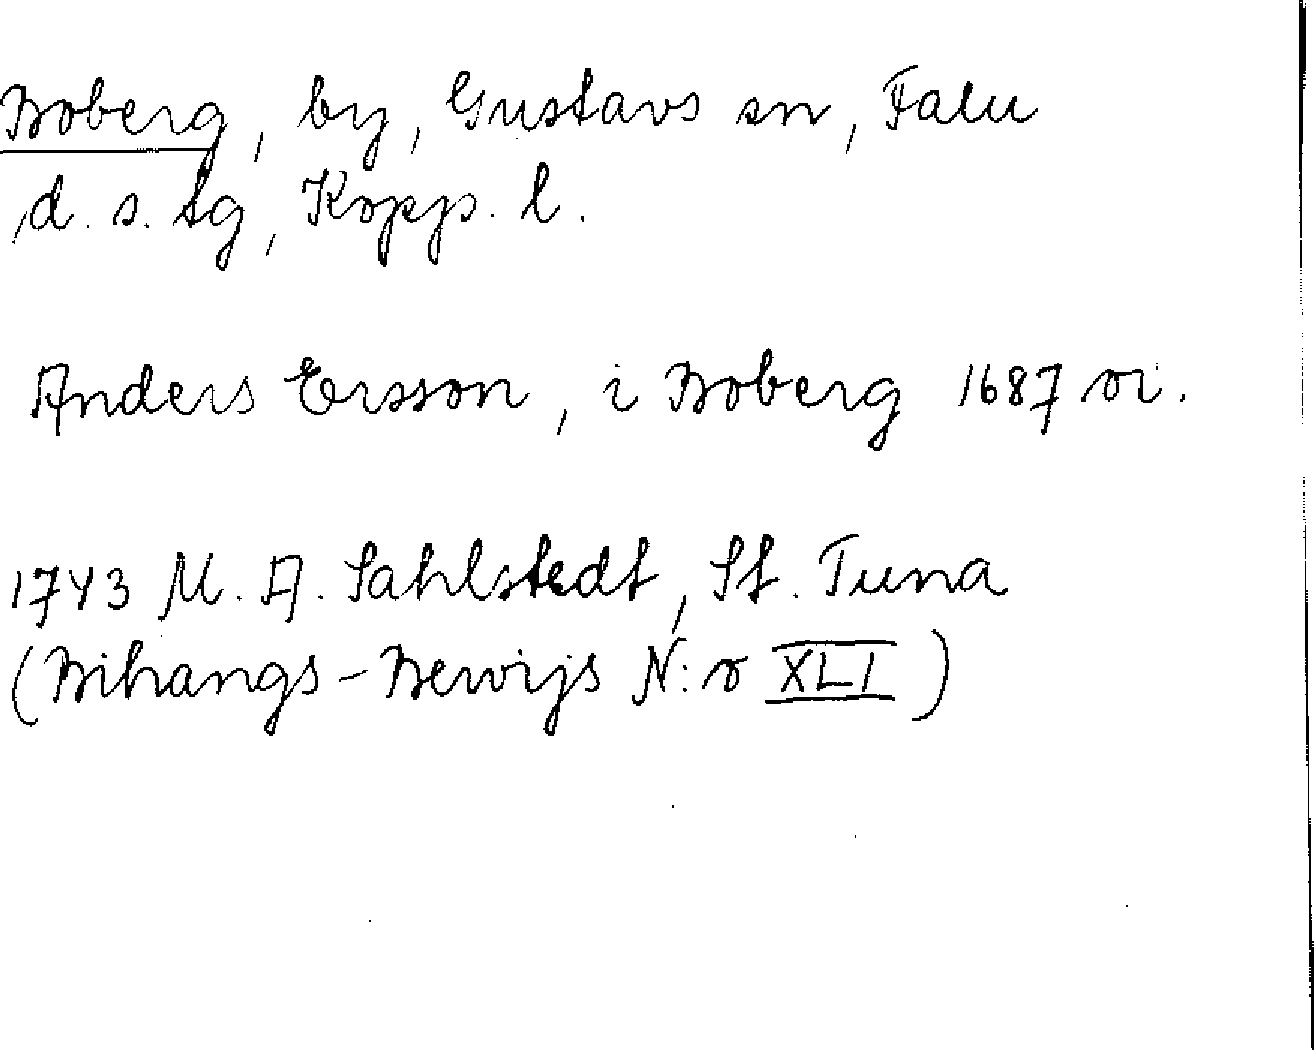 Boberg, by, Gustavs sn, Falu
d. s. tg, Kopp. l.
Anders Ersson, i Boberg 1687 or.
1743 M. A. Sahlstedt, St. Tuna
(Bihangs-Bewijs N:o XLI)